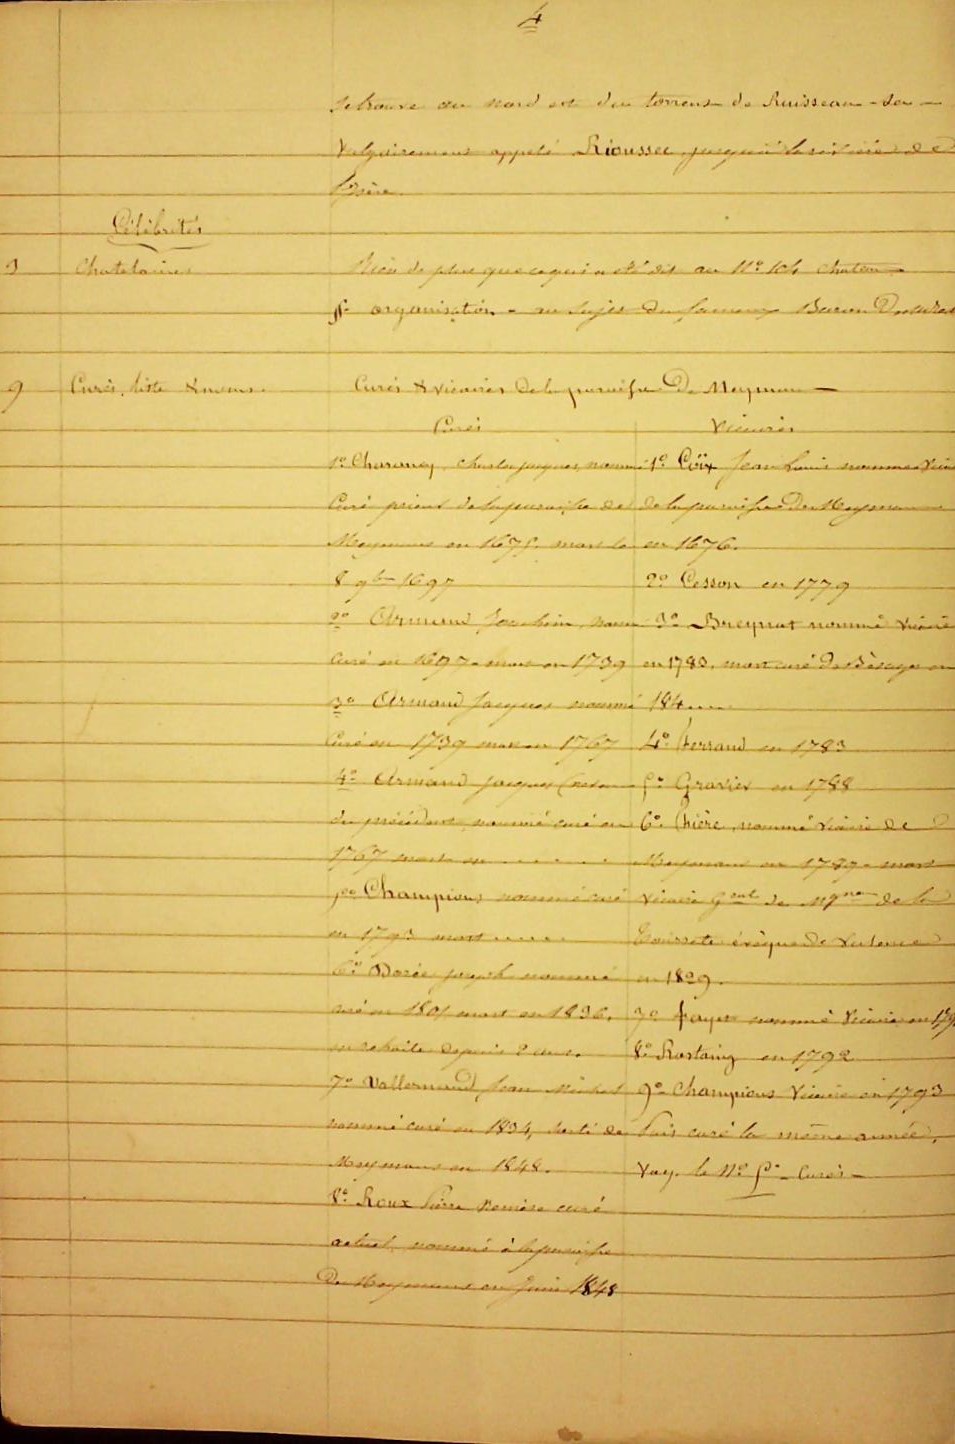 4
se trouve au nord est du torrent de Ruisseau-sec
Vulgairement appelé Rioussec jusqu'à la rivière de
l'Isère.
Célébrités
Chatelains
Rien de plus que ce qui a été dit au N° 104 Chateau
organisation - au sujet du fameux Baron
9 Curés, liste & noms.
Curés & Vicaires de la paroisse De Meymans
Curés
1° Charancy, Charles Jacques, nommé
Curé prieur de la paroisse de
Meymans en 1675. mort le
8 9bre 1697
2° Armand Joachim, nommé
Curé en 1697 - mort en 1739
3° Armand Jacques nommé
Curé en 1739 mort en 1767
4° Armand Jacques (neveu
du précédent, nommé curé en
1767 mort en ........
5° Champions nommé curé
en 1793 mort .....
6° Dorée Joseph nommé
curé en 1801 mort en 1836,
en retraite depuis 2 ans.
7° Vallernaud Jean Michel
nommé curé en 1834, sorti de
Meymans en 1848.
8° Roux Pierre curé
actuel nommé à la paroisse
De Meymans en Juin 1848
Vicaires
1° Coïx Jean Louis nommé Vicaire
de la paroisse De Meymans
en 1676.
2° Cesson en 1779
3° Breynat nommé Vicaire
en 1780, mort curé de Bésayes en
184....
4° Ferrand en 1783
5° Gravier en 1788
6° Chière, nommé Vicaire de
Meymans en 1789 - mort
Vicaire Gral de Mgr de la
Tourrete évêque de Valence
en 1829.
7° Fayet nommé Vicaire en
8° Rostaing en 1792
9° Champions Vicaire en 1793
Puis curé la même année,
Voy. le N° 5° - Curés -